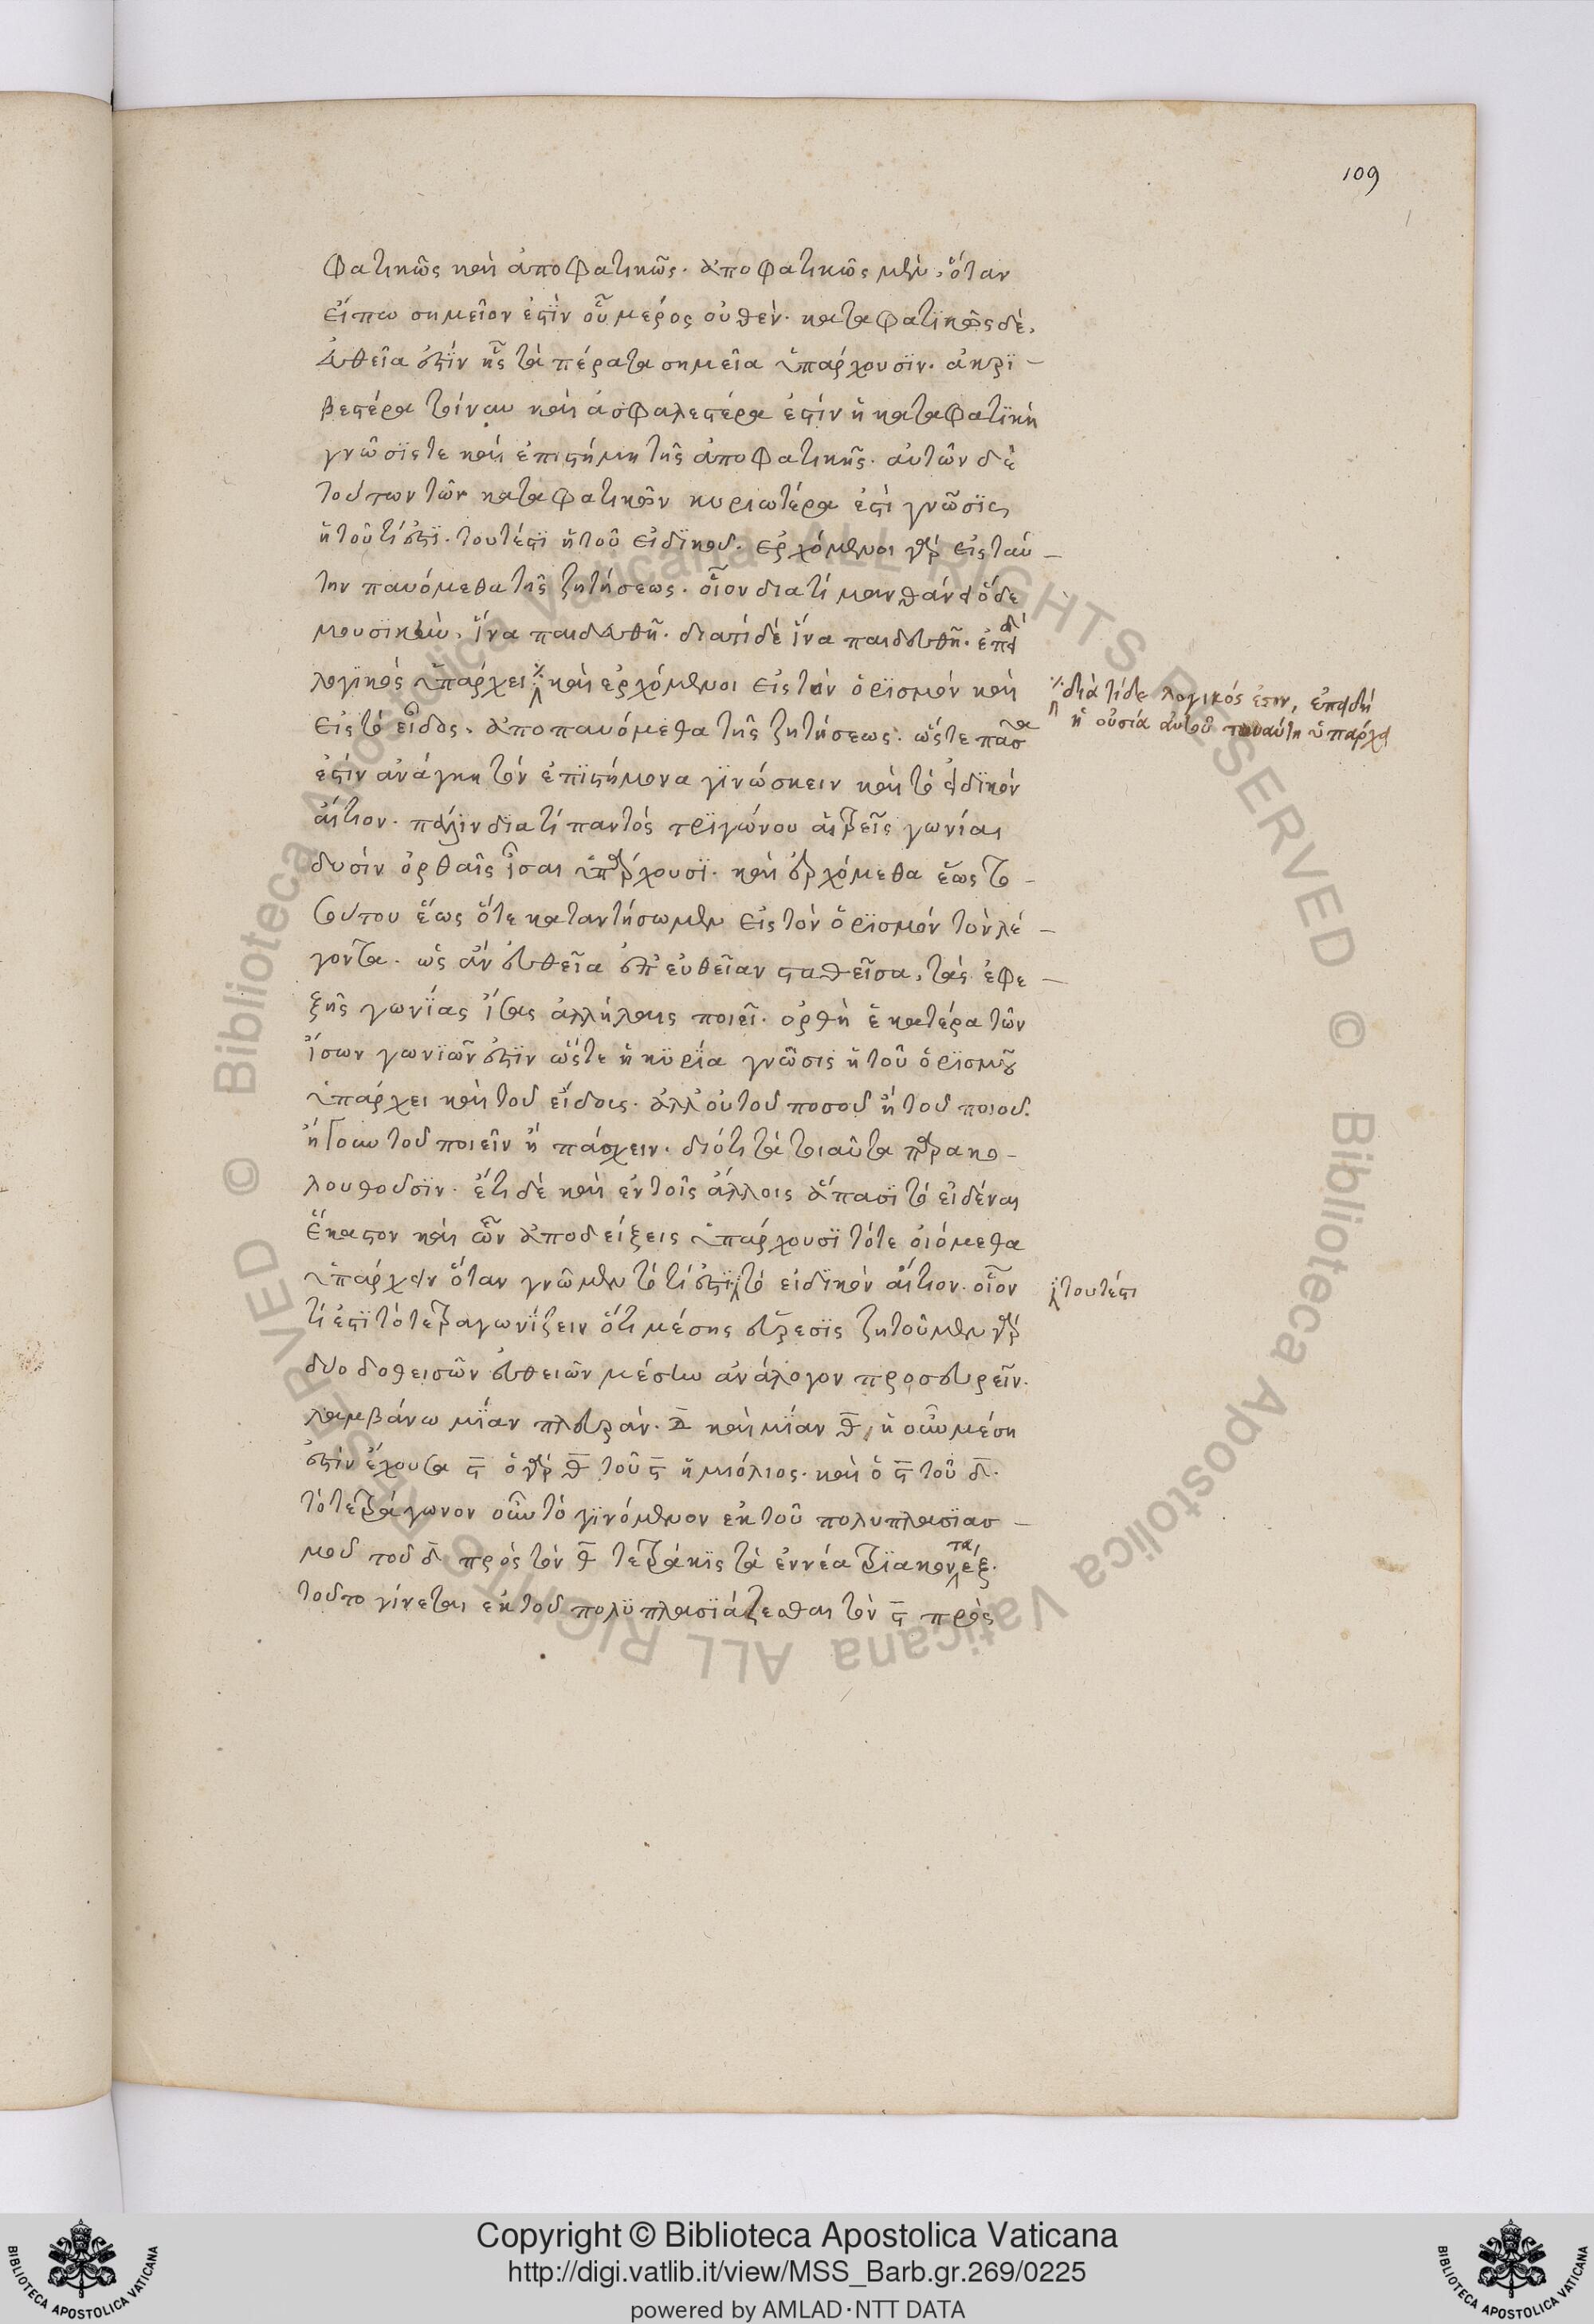 109
φατικῶς καὶ ἀποφατικῶς. ἀποφατικῶς μὲν, ὅταν
εἴπω σημεῖον ἐστὶν οὗ μέρος οὐθέν. καταφατικῶς δὲ,
εὐθεῖα ἐστὶν ἧς τὰ πέρατα σημεῖα ὑπάρχουσιν. ἀκρι-
βεστέρα τοίνυν καὶ ἀσφαλεστέρα ἐστὶν ἡ καταφατικὴ
γνῶσίς τε καὶ ἐπιστήμη τῆς ἀποφατικῆς. αὐτῶν δὲ
τούτων τῶν καταφατικῶν κυριωτέρα ἐστὶ γνῶσις
ἡ τοῦ τί ἐστι. τουτέστι ἡ τοῦ εἰδικοῦ. ἐρχόμενοι γὰρ εἰς ταύ-
την παυόμεθα τῆς ζητήσεως. οἷον διατί μανθάνει ὅδε
μουσικὴν, ἵνα παιδευθῇ. διατί δὲ ἵνα παιδευθῇ. ἐπειδὴ
λογικός ὑπάρχει ⁒ καὶ ἐρχόμενοι εἰς τὸν ὁρισμόν καὶ
⁒ διὰ τί δε λογικός ἐστιν, ἐπειδή
ἡ οὐσία αὐτοῦ τοιαύτη ὑπάρχει
εἰς τὸ εἶδος. ἀποπαυόμεθα τῆς ζητήσεως. ὥστε πᾶσα
ἐστὶν ἀνάγκη τὸν ἐπιστήμονα γινώσκειν καὶ τὸ εἰδικόν
αἴτιον. πάλιν διατί παντός τριγώνου αἱ τρεῖς γωνίαι
δυσὶν ὀρθαῖς ἶσαι ὑπάρχουσι. καὶ ἐρχόμεθα ἕως το-
σούτου ἕως ὅτε καταντήσωμεν εἰς τὸν ὁρισμόν τὸν λέ-
γοντα. ὡς ἂν εὐθεῖα ἐπ' εὐθεῖαν σταθεῖσα, τὰς ἐφε-
ξῆς γωνίας ἴσας ἀλλήλαις ποιεῖ. ὀρθὴ ἑκατέρα τῶν
ἴσων γωνιῶν ἐστὶν ὥστε ἡ κυρία γνῶσις ἡ τοῦ ὁρισμοῦ
ὑπάρχει καὶ τοῦ εἴδους. ἀλλ' οὐ τοῦ ποσοῦ ἢ τοῦ ποιοῦ.
ἤγουν τοῦ ποιεῖν ἢ πάσχειν. διότι τὰ τοιαῦτα παρακο-
λουθοῦσιν. ἔτι δὲ καὶ ἐν τοῖς ἄλλοις ἅπασι τὸ εἰδέναι
ἕκαστον καὶ ὧν ἀποδείξεις ὑπάρχουσι τότε οἰόμεθα
ὑπάρχειν ὅταν γνῶμεν τὸ τί ἐστι τὸ εἰδικὸν αἴτιον. οἷον
τουτέστι
τί ἐστι τὸ τετραγωνίζειν ὅτι μέσης εὕρεσις ζητοῦμεν γὰρ
δυο δοθεισῶν εὐθειῶν μέσην ἀνάλογον προσευρεῖν.
λαμβάνω μίαν πλευράν. δ καὶ μίαν θ, ἡ οὖν μέση
ἐστὶν ἔχουσα ϛ ὁ γὰρ θ τοῦ ϛ ἡμιόλιος. καὶ ὁ ϛ τοῦ δ.
τὸ τετράγωνον οὖν τὸ γινόμενον ἐκ τοῦ πολυπλασιασ-
μοῦ τοῦ δ πρὸς τὸν θ τετράκις τὰ ἐννέα τριακονταέξ.
τοῦτο γίνεται ἐκ τοῦ πολυπλασιάζεσθαι τὸν ϛ πρὸς
Copyright © Biblioteca Apostolica Vaticana
http://digi.vatlib.it/view/MSS_Barb.gr.269/0225
powered by AMLAD·NTT DATA